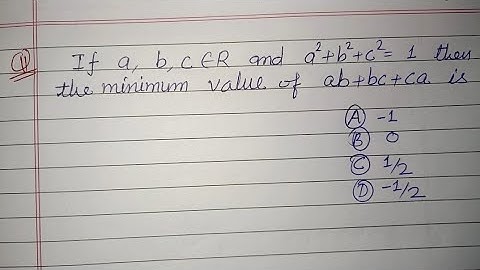 Q If a, b, c ∈ R and a²+b²+c²= 1 then
the minimum value of ab+bc+ca is
(A) -1
(B) 0
(C) 1/2
(D) -1/2